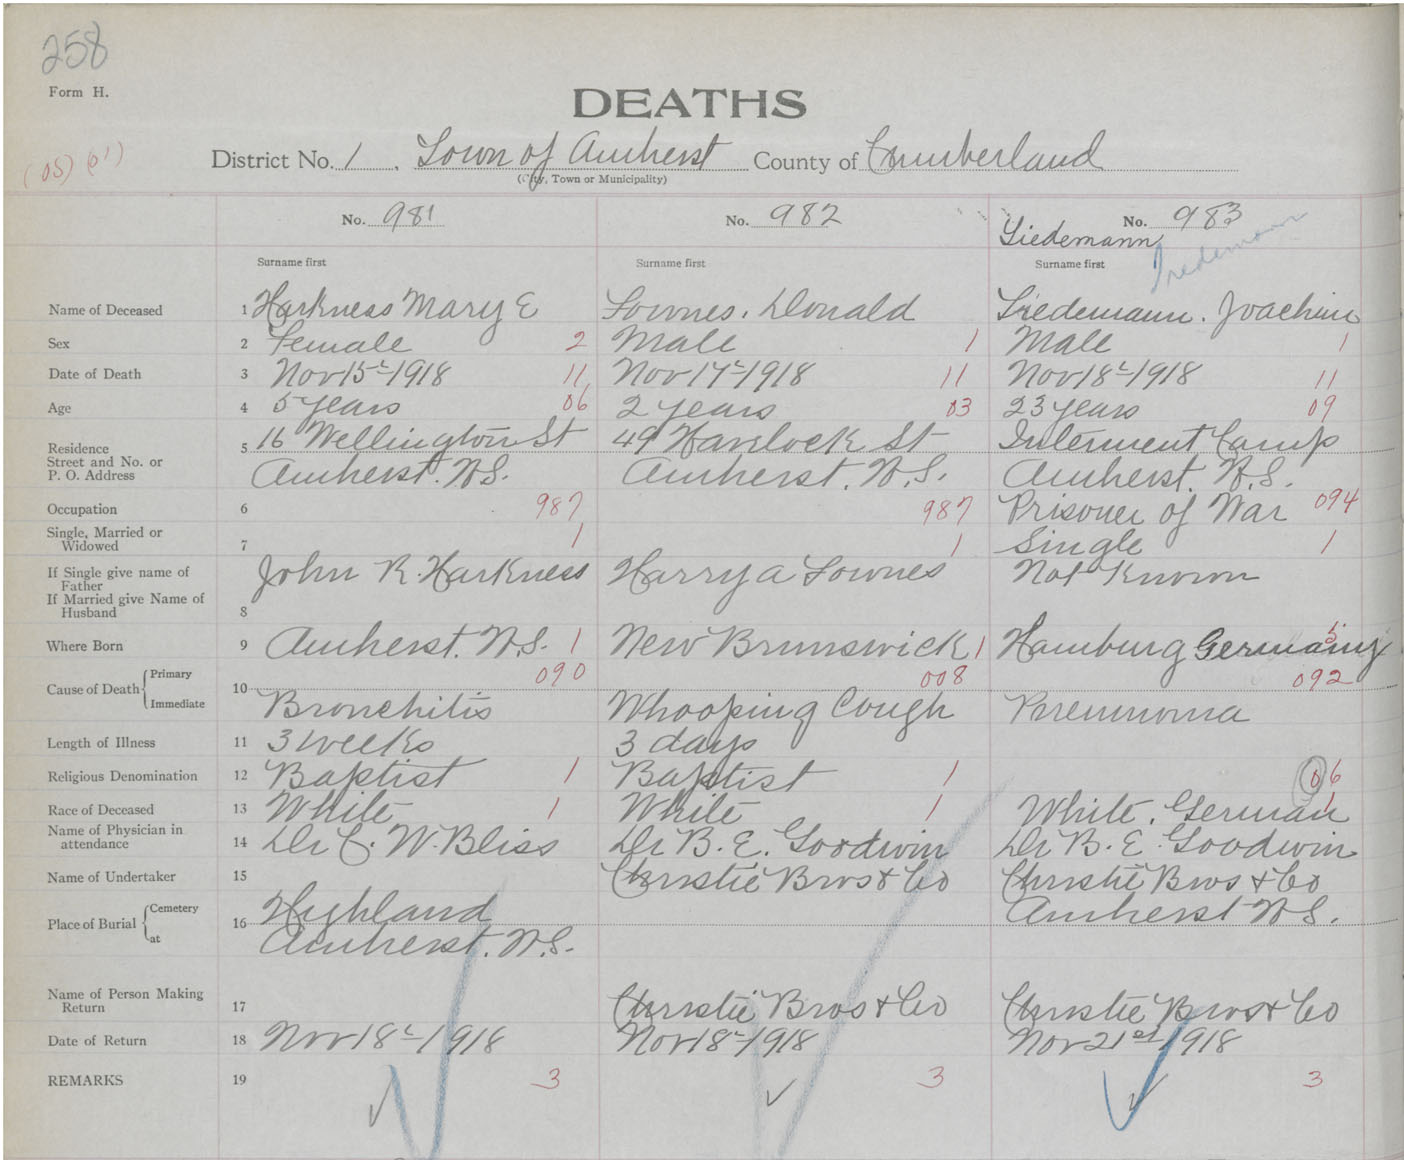 258
Form H.
DEATHS
(05) (01)
District No. 1, Town of Amherst County of Cumberland
(City, Town or Municipality)
No. 981 No. 982 No. 983
Tiedemann
Surname first Surname first Surname first Tiedemann
Name of Deceased 1 Harkness Mary E Townes. Donald Tiedemann. Joachim
Sex 2 Female 2 Male 1 Male 1
Date of Death 3 Nov 15th 1918 11 Nov 17th 1918 11 Nov 18th 1918 11
Age 4 5 years 06 2 years 03 23 years 09
Residence 5 16 Wellington St 49 Havelock St Interment Camp
Street and No. or
P. O. Address Amherst. N.S. Amherst. N.S. Amherst. N.S.
Occupation 6 987 987 Prisoner of War 094
Single, Married or
Widowed 7 1 1 Single 1
If Single give name of
Father John R. Harkness Harry A Townes Not Known
If Married give Name of
Husband 8
Where Born 9 Amherst. N.S. 1 New Brunswick 1 Hamburg Germany 5
Cause of Death { Primary 10 090 008 092
Immediate Bronchitis Whooping Cough Pneumonia
Length of Illness 11 3 weeks 3 days
Religious Denomination 12 Baptist 1 Baptist 1 06
Race of Deceased 13 White 1 White 1 White. German 1
Name of Physician in
attendance 14 Dr C. W. Bliss Dr B. E. Goodwin Dr B. E. Goodwin
Name of Undertaker 15 Christie Bros & Co Christie Bros & Co
Place of Burial { Cemetery 16 Highland Amherst N.S.
at Amherst. N.S.
Name of Person Making
Return 17 Christie Bros & Co Christie Bros & Co
Date of Return 18 Nov 18th 1918 Nov 18th 1918 Nov 21st 1918
REMARKS 19 3 3 3